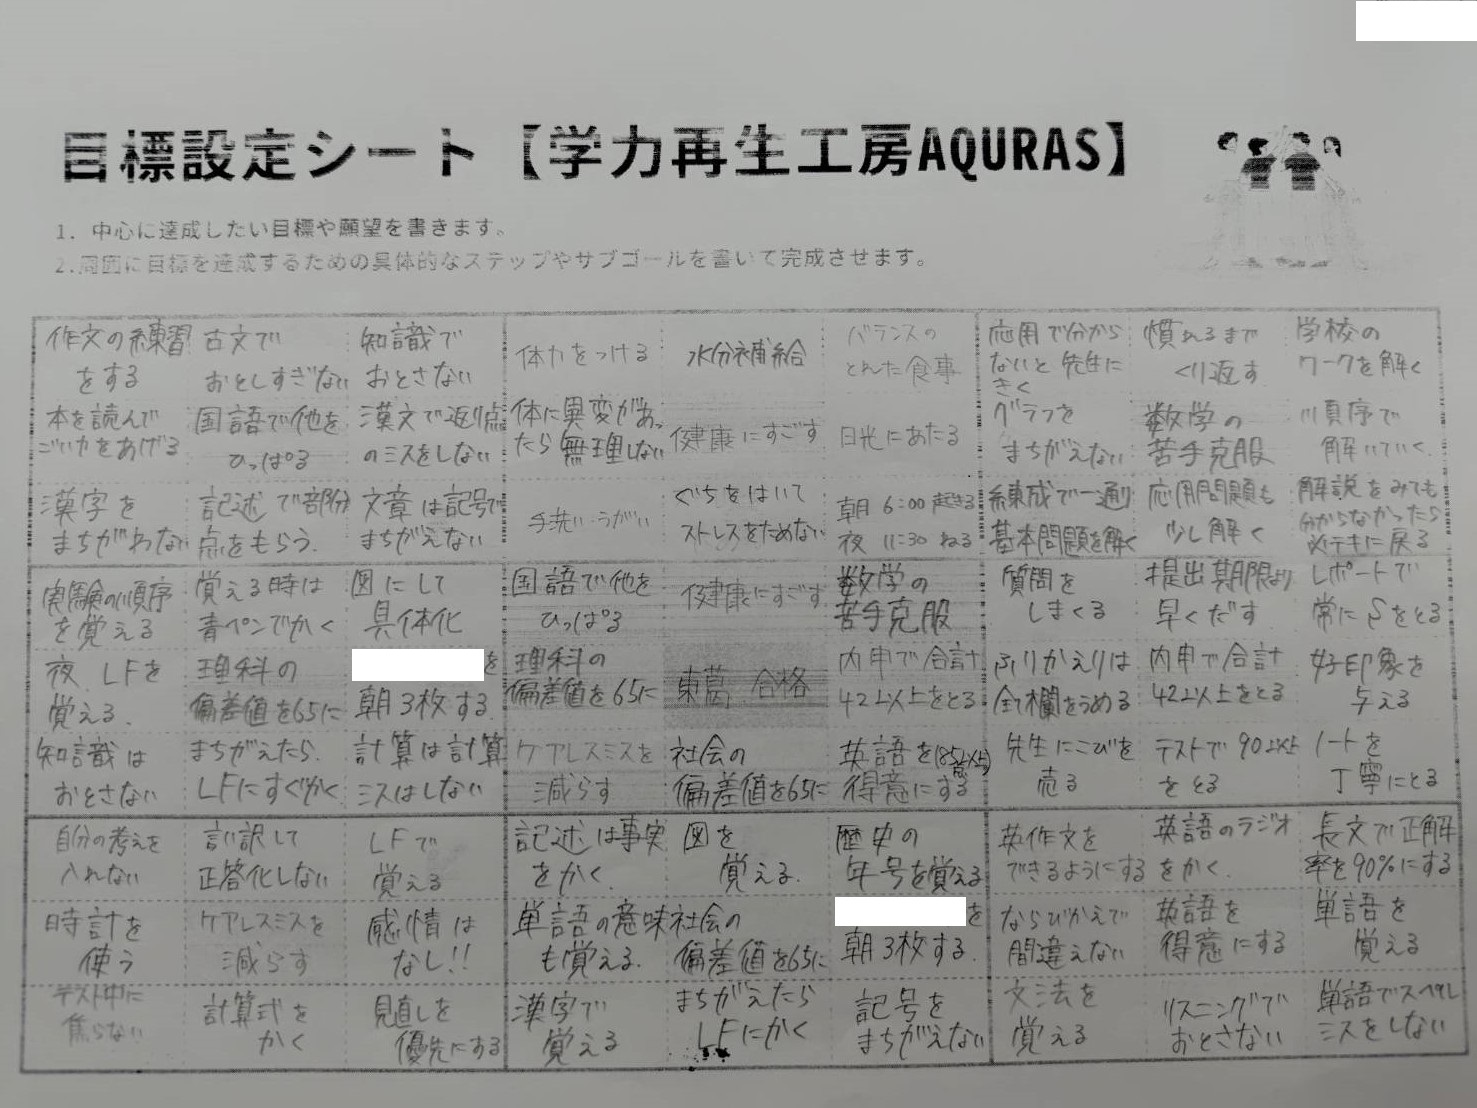 目標設定シート【学力再生工房AQURAS】
1. 中心に達成したい目標や願望を書きます。
2.周囲に目標を達成するための具体的なステップやサブゴールを書いて完成させます。
作文の練習 古文で 知識で 体力をつける 水分補給 バランスの 応用で分から 慣れるまで 学校の
をする おとしすぎない おとさない とれた食事 ないと先生に くり返す ワークを解く
きく
本を読んで 国語で他を 漢文で返り点 体に異変があっ 健康にすごす 日光にあたる グラフを 数学の 順序で
ごい力をあげる ひっぱる のミスをしない たら無理しない まちがえない 苦手克服 解いていく
漢字を 記述で部分 文章は記号で 手洗い・うがい ぐちをはいて 朝 6:00 起きる 練成で一通り 応用問題も 解説をみても
まちがわない 点をもらう. まちがえない ストレスをためない 夜 11:30 ねる 基本問題を解く 少し解く 分からなかったら
メテキに戻る
実験の順序 覚える時は 図にして 国語で他を 健康にすごす 数学の 質問を 提出期限より レポートで
を覚える 青ペンでかく 具体化 ひっぱる 苦手克服 しまくる 早くだす 常にSをとる
夜、LFを 理科の を 理科の 東葛 合格 内申で合計 ふりかえりは 内申で合計 好印象を
覚える. 偏差値を65に 朝3枚する. 偏差値を65に 42以上をとる 全欄をうめる 42以上をとる 与える
知識は まちがえたら. 計算は計算 ケアレスミスを 社会の 英語を(85以上) 先生にこびを テストで90以上 ノートを
おとさない LFにすぐかく ミスはしない 減らす 偏差値を65に 得意にする 売る をとる 丁寧にとる
自分の考えを 言い訳して LFで 記述は事実 図を 歴史の 英作文を 英語のラジオ 長文で正解
入れない 正答化しない 覚える をかく. 覚える. 年号を覚える できるようにする をかく. 率を90%にする
時計を ケアレスミスを 感情は 単語の意味 社会の を ならびかえで 英語を 単語を
使う 減らす なし!! も覚える. 偏差値を65に 朝3枚する. 間違えない 得意にする 覚える
テスト中に 計算式を 見直しを 漢字で まちがえたら 記号を 文法を リスニングで 単語でスペル
焦らない かく 優先にする 覚える LFにかく まちがえない 覚える おとさない ミスをしない